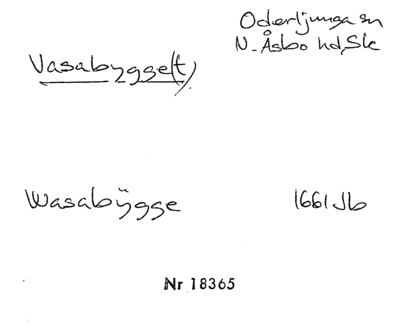 Oderljunga sn
Vasabygge(t)
N. Åsbo hd, Sk
Wasabÿgge 1661 Jb
Nr 18365